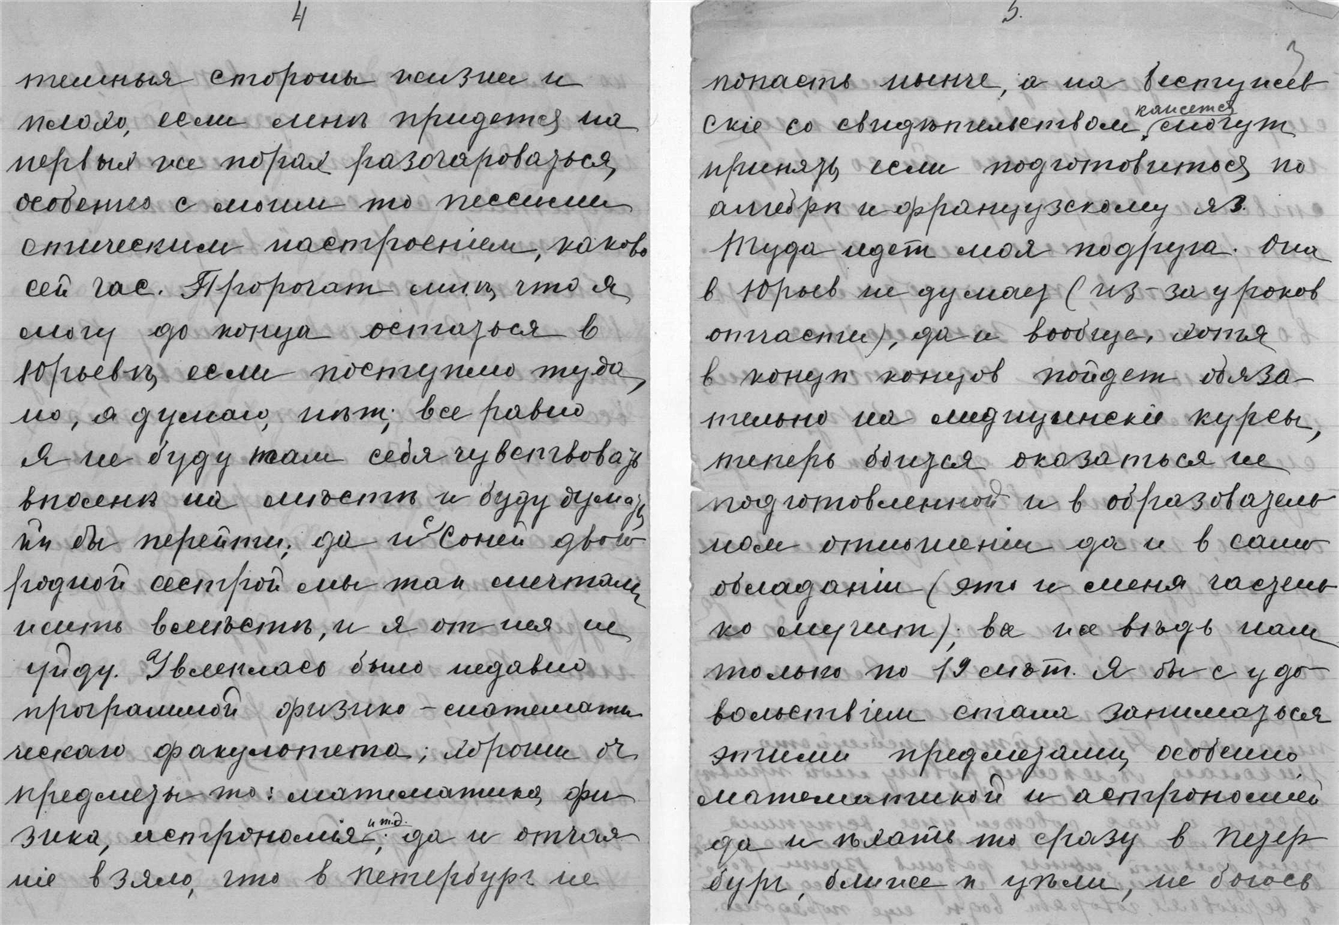 4
темныя стороны жизни и
плохо, если мнѣ придется на
первыя же порах разочароваться,
особенно с моим то пессими
стическим настроеніем, каково
сей час. Пророчат мнѣ, что я
могу до конца остаться в
Юрьевѣ, если поступлю туда,
но, я думаю, нѣт; все равно
я не буду там себя чувствовать
вполнѣ на мѣстѣ и буду думать,
как бы перейти; да и с Соней двою
родной сестрой мы так мечтали
жить вмѣстѣ, и я от нея не
уйду. Увлеклась было недавно
программой физико-математи
ческаго факультета; хороши оч
предметы то: математика, фи
зика, астрономія и т.д.; да и отчая
ніе взяло, что в Петербург не
5.
3
попасть нынче, а на Бестужев
скіе со свидѣтельством, кажется, могут
принять, если подготовиться по
алгебрѣ и французскому яз.
Туда идет моя подруга. Она
в Юрьев не думает (из-за уроков
отчасти), да и вообще, хотя
в концѣ концов пойдет обяза-
тельно на медицинскіе курсы,
теперь боится оказаться не
подготовленной и в образователь
ном отношеніи да и в само
обладаніи (это и меня частень
ко мучит); все же вѣдь нам
только по 19 лѣт. Я бы с удо
вольствіем стала заниматься
этими предметами, особенно
математикой и астрономіей
да и ѣхать то сразу в Петер
бург, ближе к цѣли, не боюсь